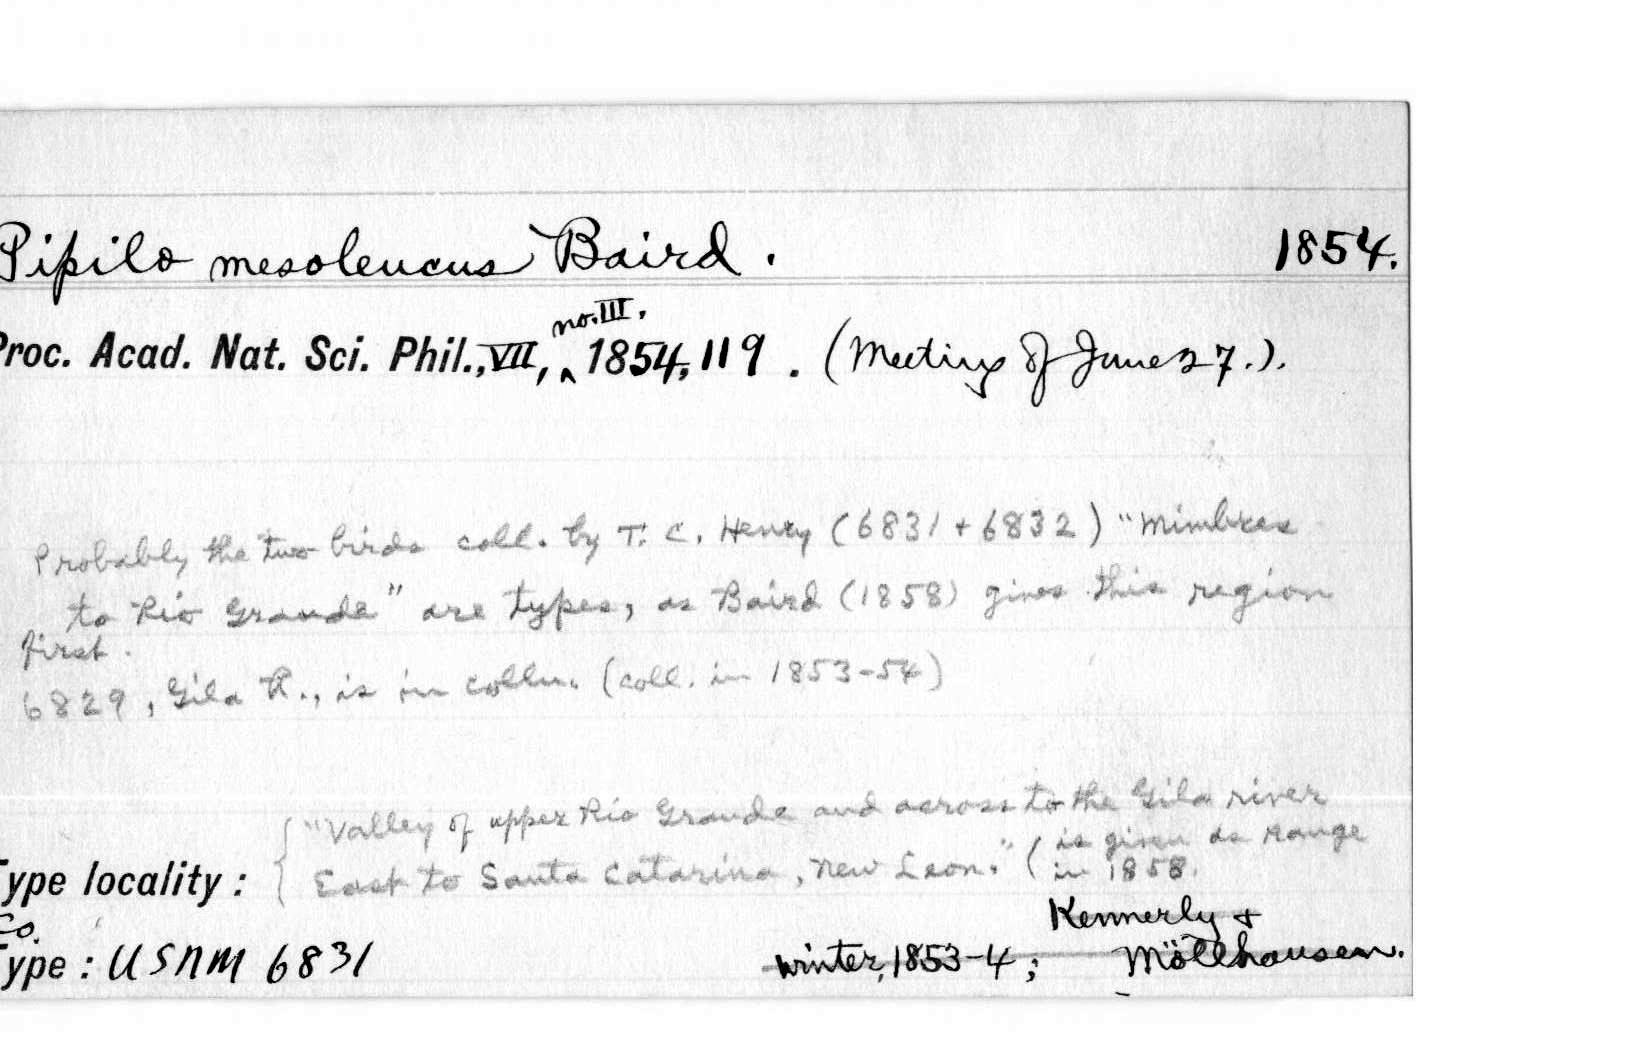 Pipilo mesoleucus Baird. 1854.
no. III.
Proc. Acad. Nat. Sci. Phil., VII, ‸ 1854, 119. (Meeting of June 27.).
Probably the two birds coll. by T. C. Henry (6831 + 6832) "Mimbres
to Rio Grande" are types, as Baird (1858) gives this region
first.
6829, Gila R., is in colln. (coll. in 1853-54)
"Valley of upper Rio Grande and across to the Gila river
East to Santa Catarina, New Leon." (is given as range
in 1858.
Type locality:
Co.
Kennerly +
Type: USNM 6831 winter, 1853-4; Möllhausen.